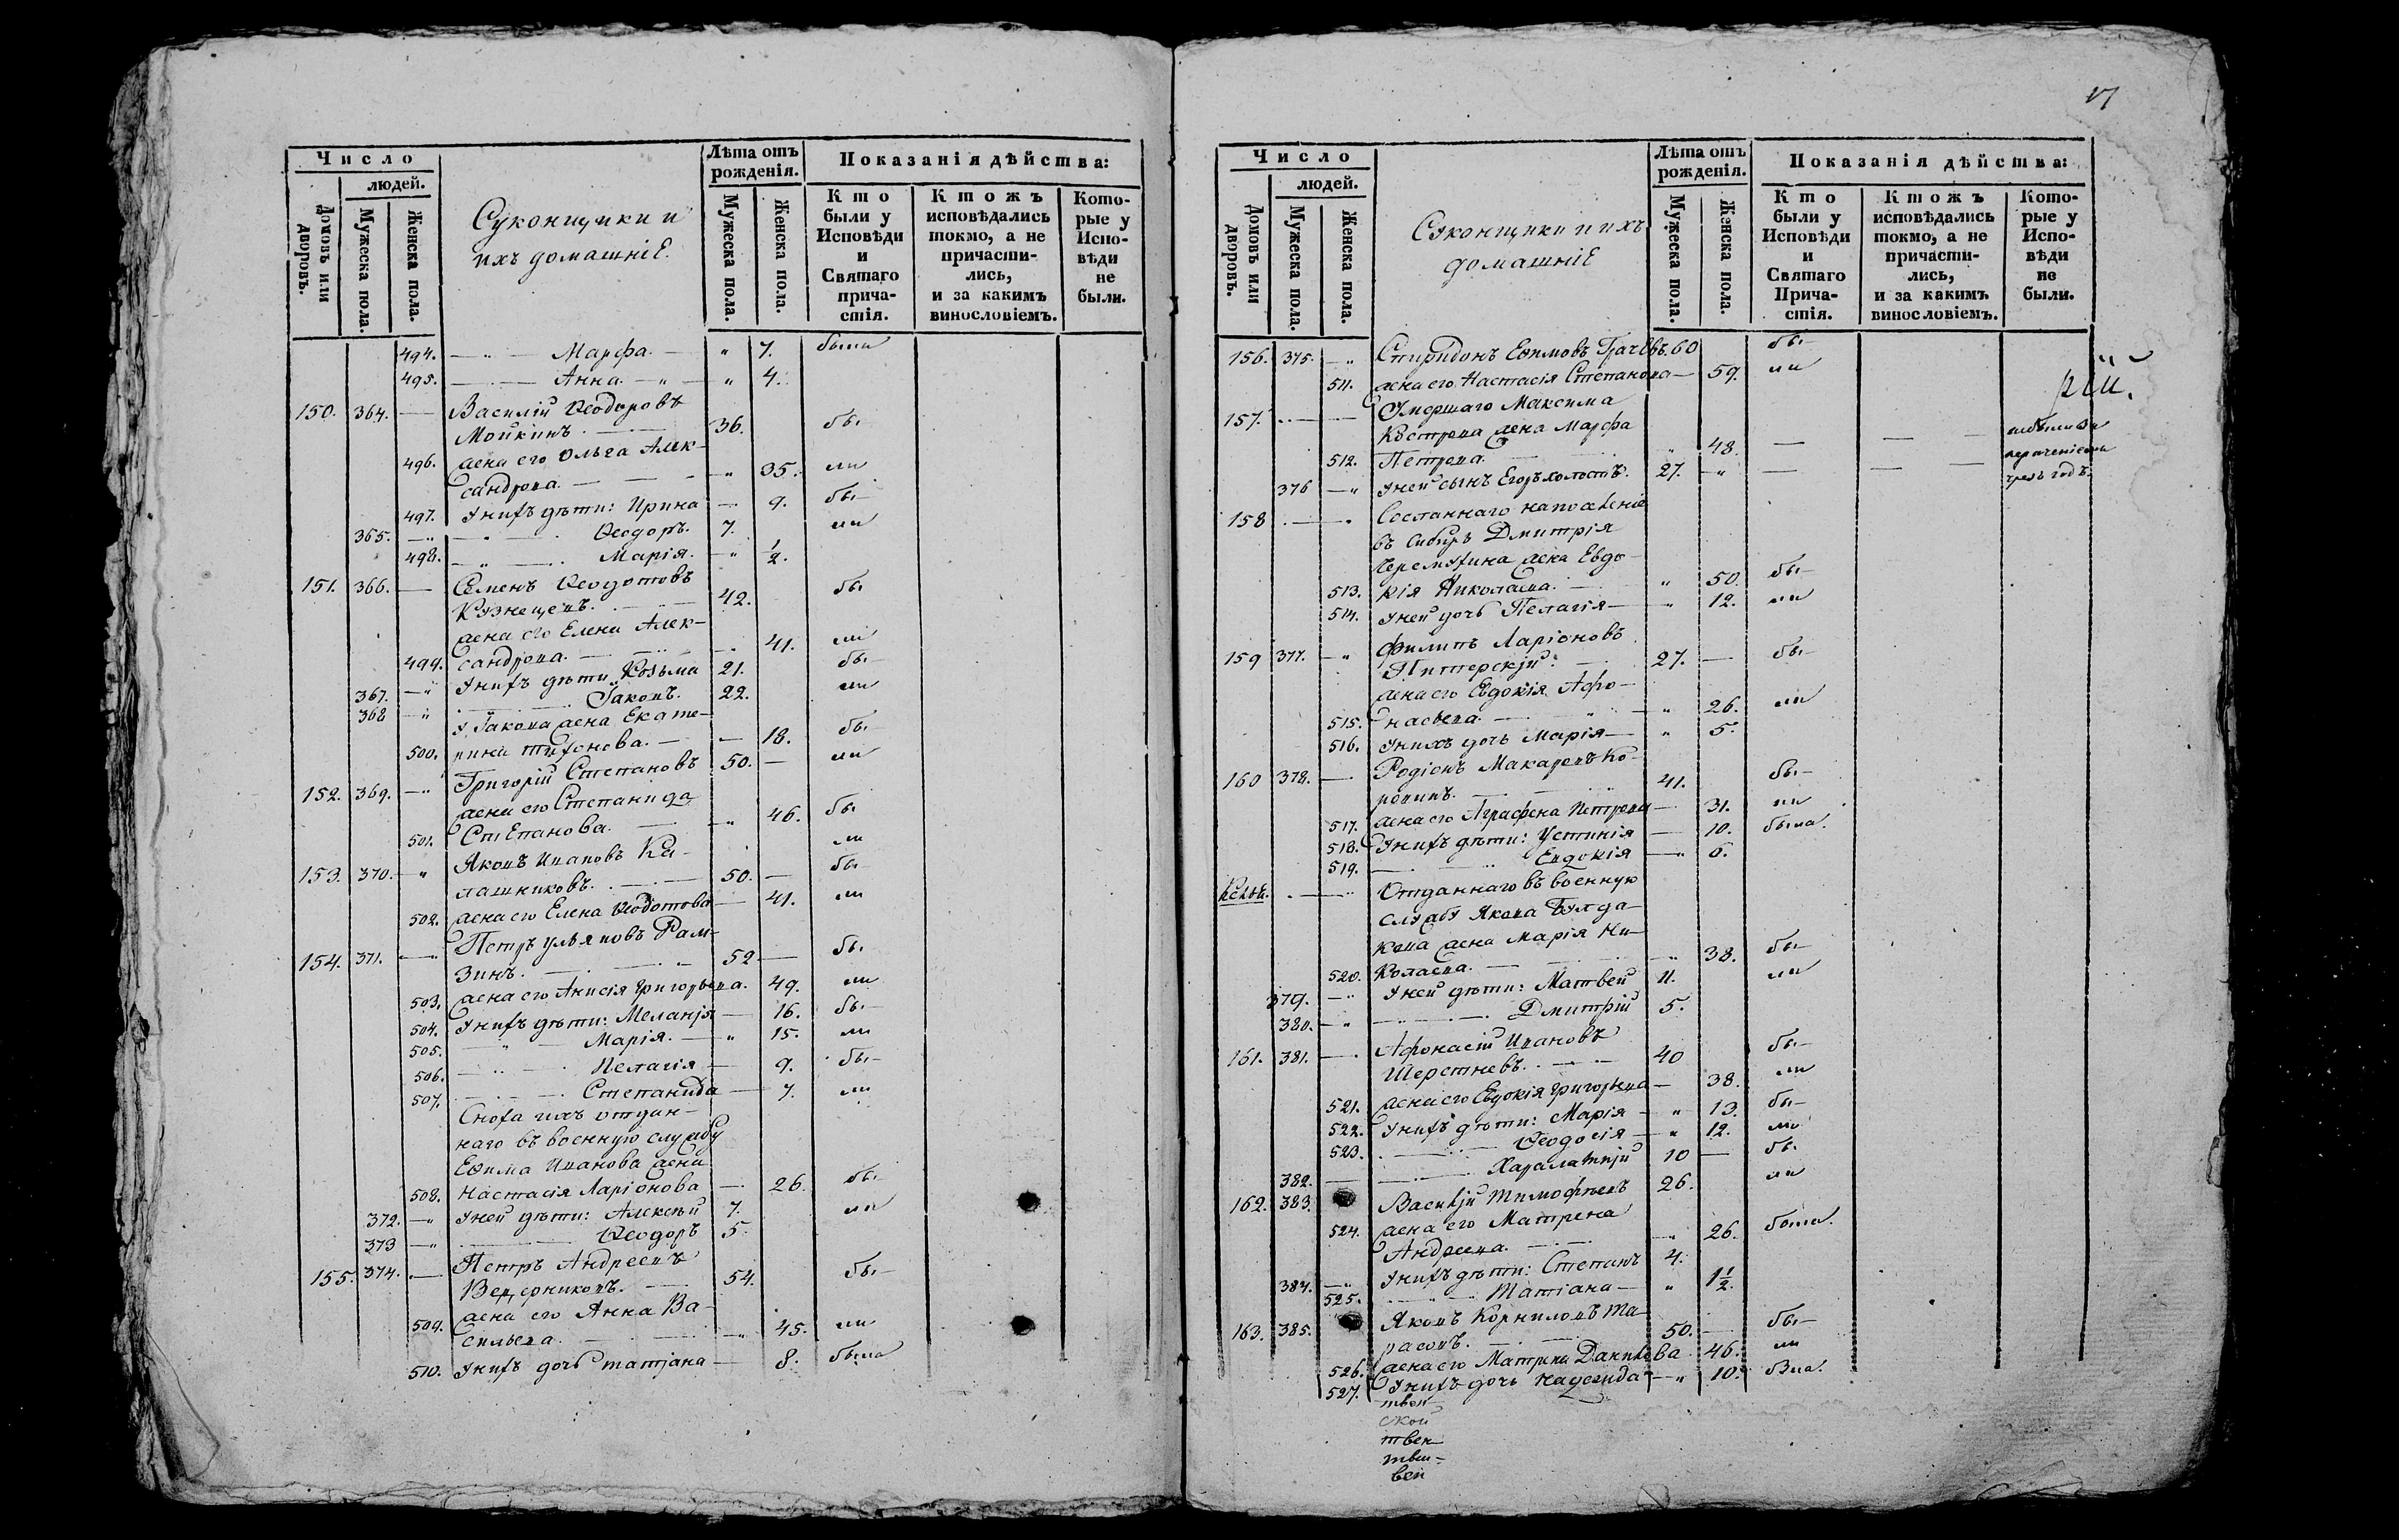 Число
людей.
Домовъ или дворовъ.
Мужеска пола.
Женска пола.
Суконщики и
ихъ домашніе.
Лѣта отъ
рожденія.
Мужеска пола.
Женска пола.
Показанія дѣйства:
Кто
были у
Исповѣди
и
Святаго
прича-
стія.
Ктожъ
исповѣдались
токмо, а не
причасти-
лись,
и за какимъ
винословіемъ.
Кото-
рые у
Испо-
вѣди
не
были.
494. — „ — Марфа. — „ 7. была
495. — . — Анна. — „ — „ 4.
150. 364. — Василій Ѳеодоровъ
Мойкинъ. — 36. бы-
496. жена его Ольга Алек-
сандрова. — — „ 35. ли
497. У нихъ дѣти: Ирина — 9. бы-
365. — „ — Ѳеодоръ. 7. ли
498. — „ — Марія. — „ 1/2.
151. 366. — Семенъ Ѳеодотовъ
Кузнецовъ. — 42. бы
жена его Елена Алек-
499. сандрова. — 41. ли
367. — „ У нихъ дѣти Козьма 21. бы-
368 — „ Іаковъ. 22. ли
У Іакова жена Екате-
500. рина Тихонова. — — 18. бы-
152. 369. — „ Григорій Степановъ 50. — ли
жена его Степанида
501. Степанова. — „ 46. бы
ли
153. 370. — „ Яковъ Ивановъ Ка-
лашниковъ. — 50. — бы
502. жена его Елена Ѳеодотова — 41. ли
154. 371. — „ Петръ Ульяновъ Рам-
зинъ. — 52 — бы-
503. жена его Анисія Григорьева. 49. ли
504. У нихъ дѣти: Меланія — 16. бы-
505. — „ — Марія. — „ 15. ли
506. — „ — Пелагія — 9. бы-
507. — Степанида — 7. ли
Сноха ихъ отдан-
наго въ военную службу
Ефима Иванова жена
508. Настасія Ларіонова — 26. бы-
372. — „ У ней дѣти: Алексѣй 7. ли
373 — „ Ѳеодоръ 5.
155. 374. — Петръ Андреевъ
Ведерниковъ. — 54. бы-
509. жена его Анна Ва-
сильева. — „ 45. ли
510. У нихъ дочь Татіана — 8. была
17
Число
людей.
Домовъ или дворовъ.
Мужеска пола.
Женска пола.
Суконщики и ихъ
домашніе
Лѣта отъ
рожденія.
Мужеска пола.
Женска пола.
Показанія дѣйства:
Кто
были у
Исповѣди
и
Святаго
Прича-
стія.
Ктожъ
исповѣдались
токмо, а не
причасти-
лись,
и за какимъ
винословіемъ.
Кото-
рые у
Испо-
вѣди
не
были.
156. 375. — „ Спиридонъ Ефимовъ Грачевъ. 60 бы-
511. жена его Настасія Степанова — 59. ли
рій.
157. — — Умершаго Максима
Кострова жена Марфа
512. Петрова. „ 48. — — —
376 — „ У ней сынъ Егоръ холостъ. 27. — „ — — — чрезъ годъ.
158 — „ Сосланнаго на поселеніе
въ Сибирь Дмитрія
Черемухина жена Евдо-
513. кія Николаева. — „ 50. бы-
514. У ней дочь Пелагія — „ 12. ли
159 377. — „ Филипъ Ларіоновъ
Питтерскій. — 27. — бы-
жена его Евдокія Афо-
515. насьева. — „ 26. ли
516. У нихъ дочь Марія — „ 5.
160 378. — Родіонъ Макаровъ Ко-
ровинъ. — 41. бы-
517. жена его Аграфена Петрова — 31. ли
518. У нихъ дѣти: Устинія — 10. была.
519. Евдокія — „ 6.
Келья. — „ Отданнаго въ военную
службу Якова Булда-
кова жена Марія Ни-
520. колаева. — „ 38. бы-
379. — „ У ней дѣти: Матвей 11. ли
380. — „ Дмитрій 5.
161. 381. — Афонасій Ивановъ
Шерстневъ. — 40 бы-
521. жена его Евдокія Григорьева — 38. ли
522. У нихъ дѣти: Марія — „ 13. бы-
523. — Ѳеодосія — „ 12. ли
382. — Харалампій 10 — бы.
162. 383. Василій Тимофѣевъ 26. ли
524. жена его Матрена
Андреева. — „ 26. была.
384. — „ У нихъ дѣти: Степанъ 4.
525. — Татіана — „ 1 1/2.
163. 385. Яковъ Корниловъ Та-
расовъ. — 50. — бы-
526. жена его Матрена Данилова 46. ли
527. У нихъ дочь Надежда — „ 10. была.
твен
ской
твен
твен-
вен